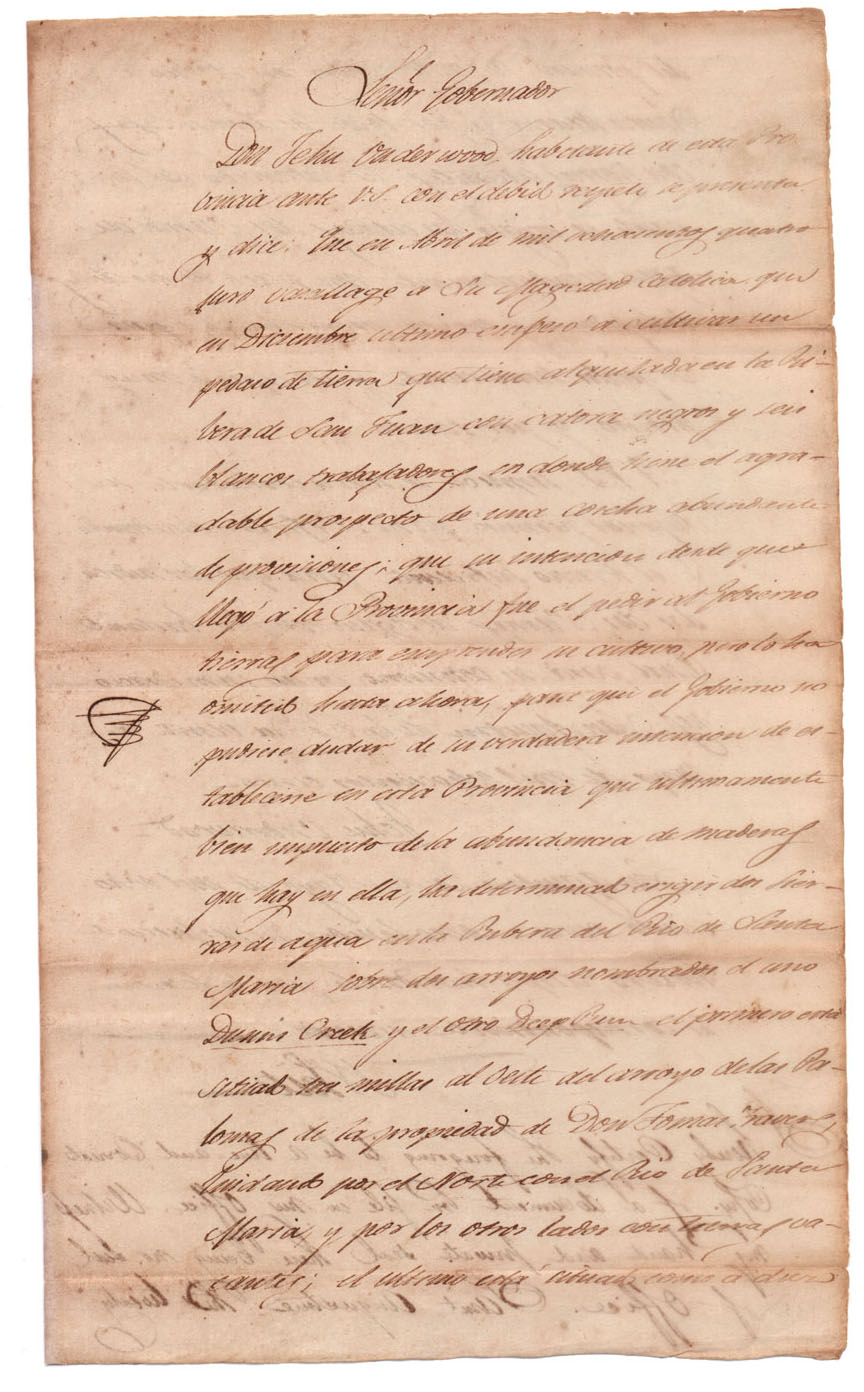 Señor Gobernador
Don Jehu Underwood habitante de esta Pro-
vincia ante V.S. con el debido respeto se presenta
y dice: Que en Abril de mil ochocientos quatro
juró vasallage a Su Magestad Catolica que
en Diciembre ultimo empesó a cultivar un
pedaso de tierra que tiene alquilada en la Ri-
vera de San Juan con catorse negros y seis
blancos trabajadores en donde tiene el agra-
dable prospecto de una cosecha abundante
de provisiones; que su intencion desde que
llegó a la Provincia fue el pedir al Gobierno
tierras para emprender su cultivo, pero lo ha
omitido hasta ahora, para que el Gobierno no
pudiese dudar de su verdadera intencion de es-
tablecerse en esta Provincia que ultimamente
bien impuesto de la abundancia de maderas
que hay en ella, ha determinado erigir dos Sier-
ras de agua en la Ribera del Rio de Santa
Maria sobre dos arroyos nombrados el uno
Dunns Creek y el otro Deep Run el primero está
situado tres millas al Oeste del arroyo de las Pa-
lomas de la propiedad de Don Tomas Travers,
lindando por el Norte con el Rio de Santa
Maria, y por los otros lados con tierras va-
cantes; el ultimo está situado como a dies